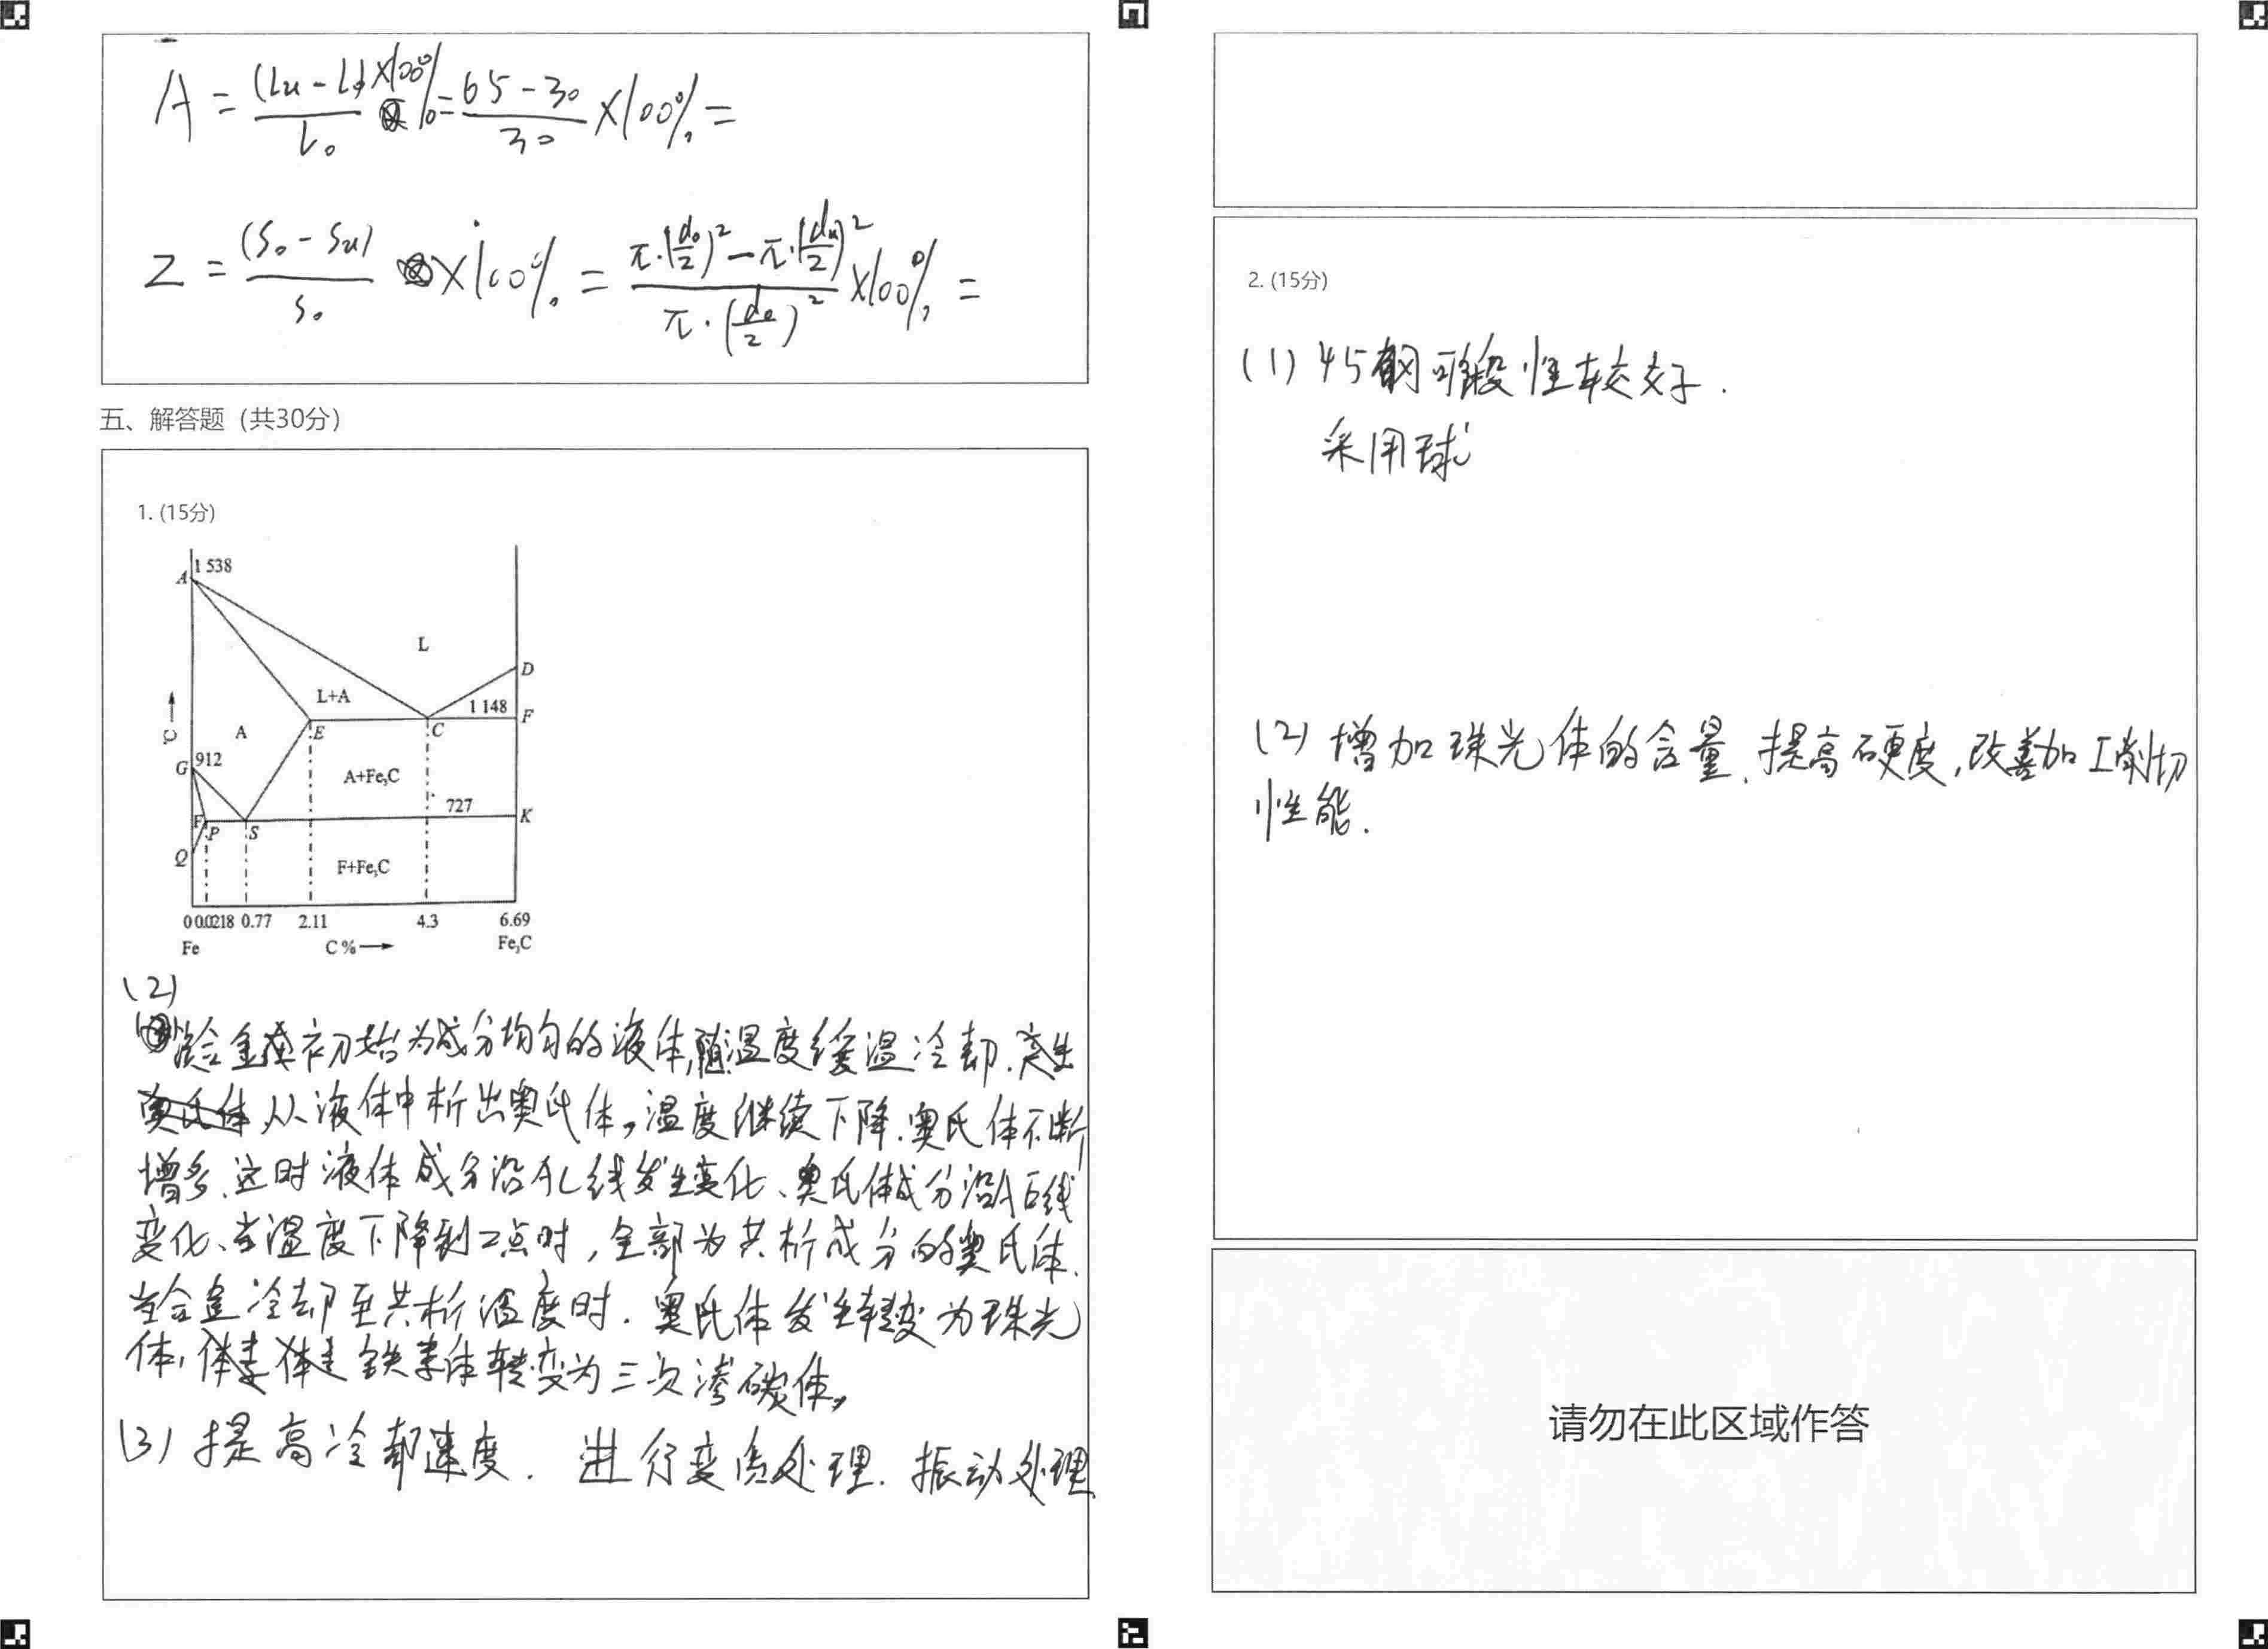 A = (Lu - L0)×100% / L0 = 65-30 / 30 ×100% =
Z = (S0 - Su) / S0 ×100% = π·(d0/2)² - π·(du/2)² / π·(d0/2)² ×100% =
五、解答题（共30分）
1. (15分)
A 1 538
L
D
L+A
1 148 F
A E C
℃
G 912
A+Fe3C
727 K
F P S
Q
F+Fe3C
0 0.0218 0.77 2.11 4.3 6.69
Fe C% Fe3C
(2)
合金初始为成分均匀的液体,随温度缓温冷却.
从液体中析出奥氏体。温度继续下降.奥氏体不断
增多、这时液体成分沿AC线发生变化、奥氏体成分沿AE线
变化、当温度下降到2点时，全部为共析成分的奥氏体.
当合金冷却至共析温度时.奥氏体发生转变为珠光
体，铁素体转变为三次渗碳体。
(3) 提高冷却速度. 进行变质处理. 振动处理
2. (15分)
(1) 45钢可锻性较好.
采用球
(2) 增加珠光体的含量、提高硬度,改善加工削切
性能.
请勿在此区域作答